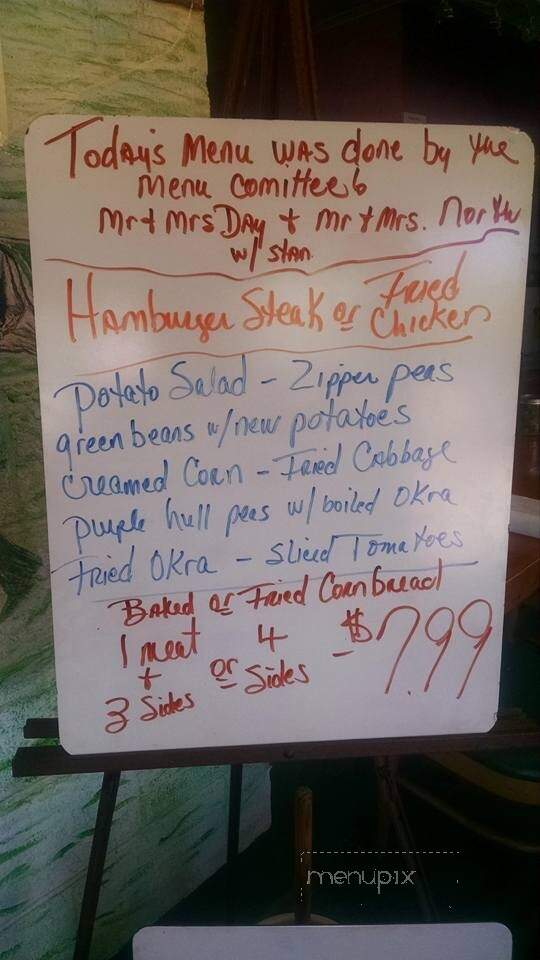 Today's Menu was done by the
Menu Comittee
Mr + Mrs Day + Mr + Mrs. North
w/ Stan
Hamburger Steak or Fried Chicken
Potato Salad - Zipper peas
green beans w/new potatoes
Creamed Corn - Fried Cabbage
purple hull peas w/ boiled OKra
Fried OKra - Sliced Tomatoes
Baked or Fried Cornbread
1 meat + 3 Sides or 4 Sides - $7.99
menupix